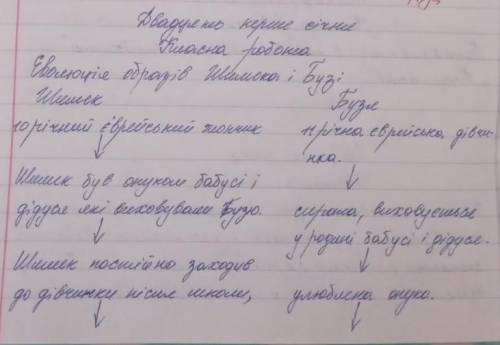 Двадцять перше січня
Класна робота
Еволюція образів Шимека і Бузі
Шимек Бузя
10 річний єврейський хлопчик 11 річна єврейська дівчи-
нка.
Шимек був онуком бабусі і
дідуся які виховували Бузю. сирота, виховується
у родині бабусі і дідуся.
Шимек постійно заходив
до дівчинки після школи, улюблена онука.